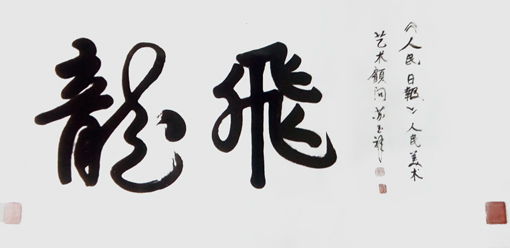 飛龍
《人民日報》人民美术
艺术顧问